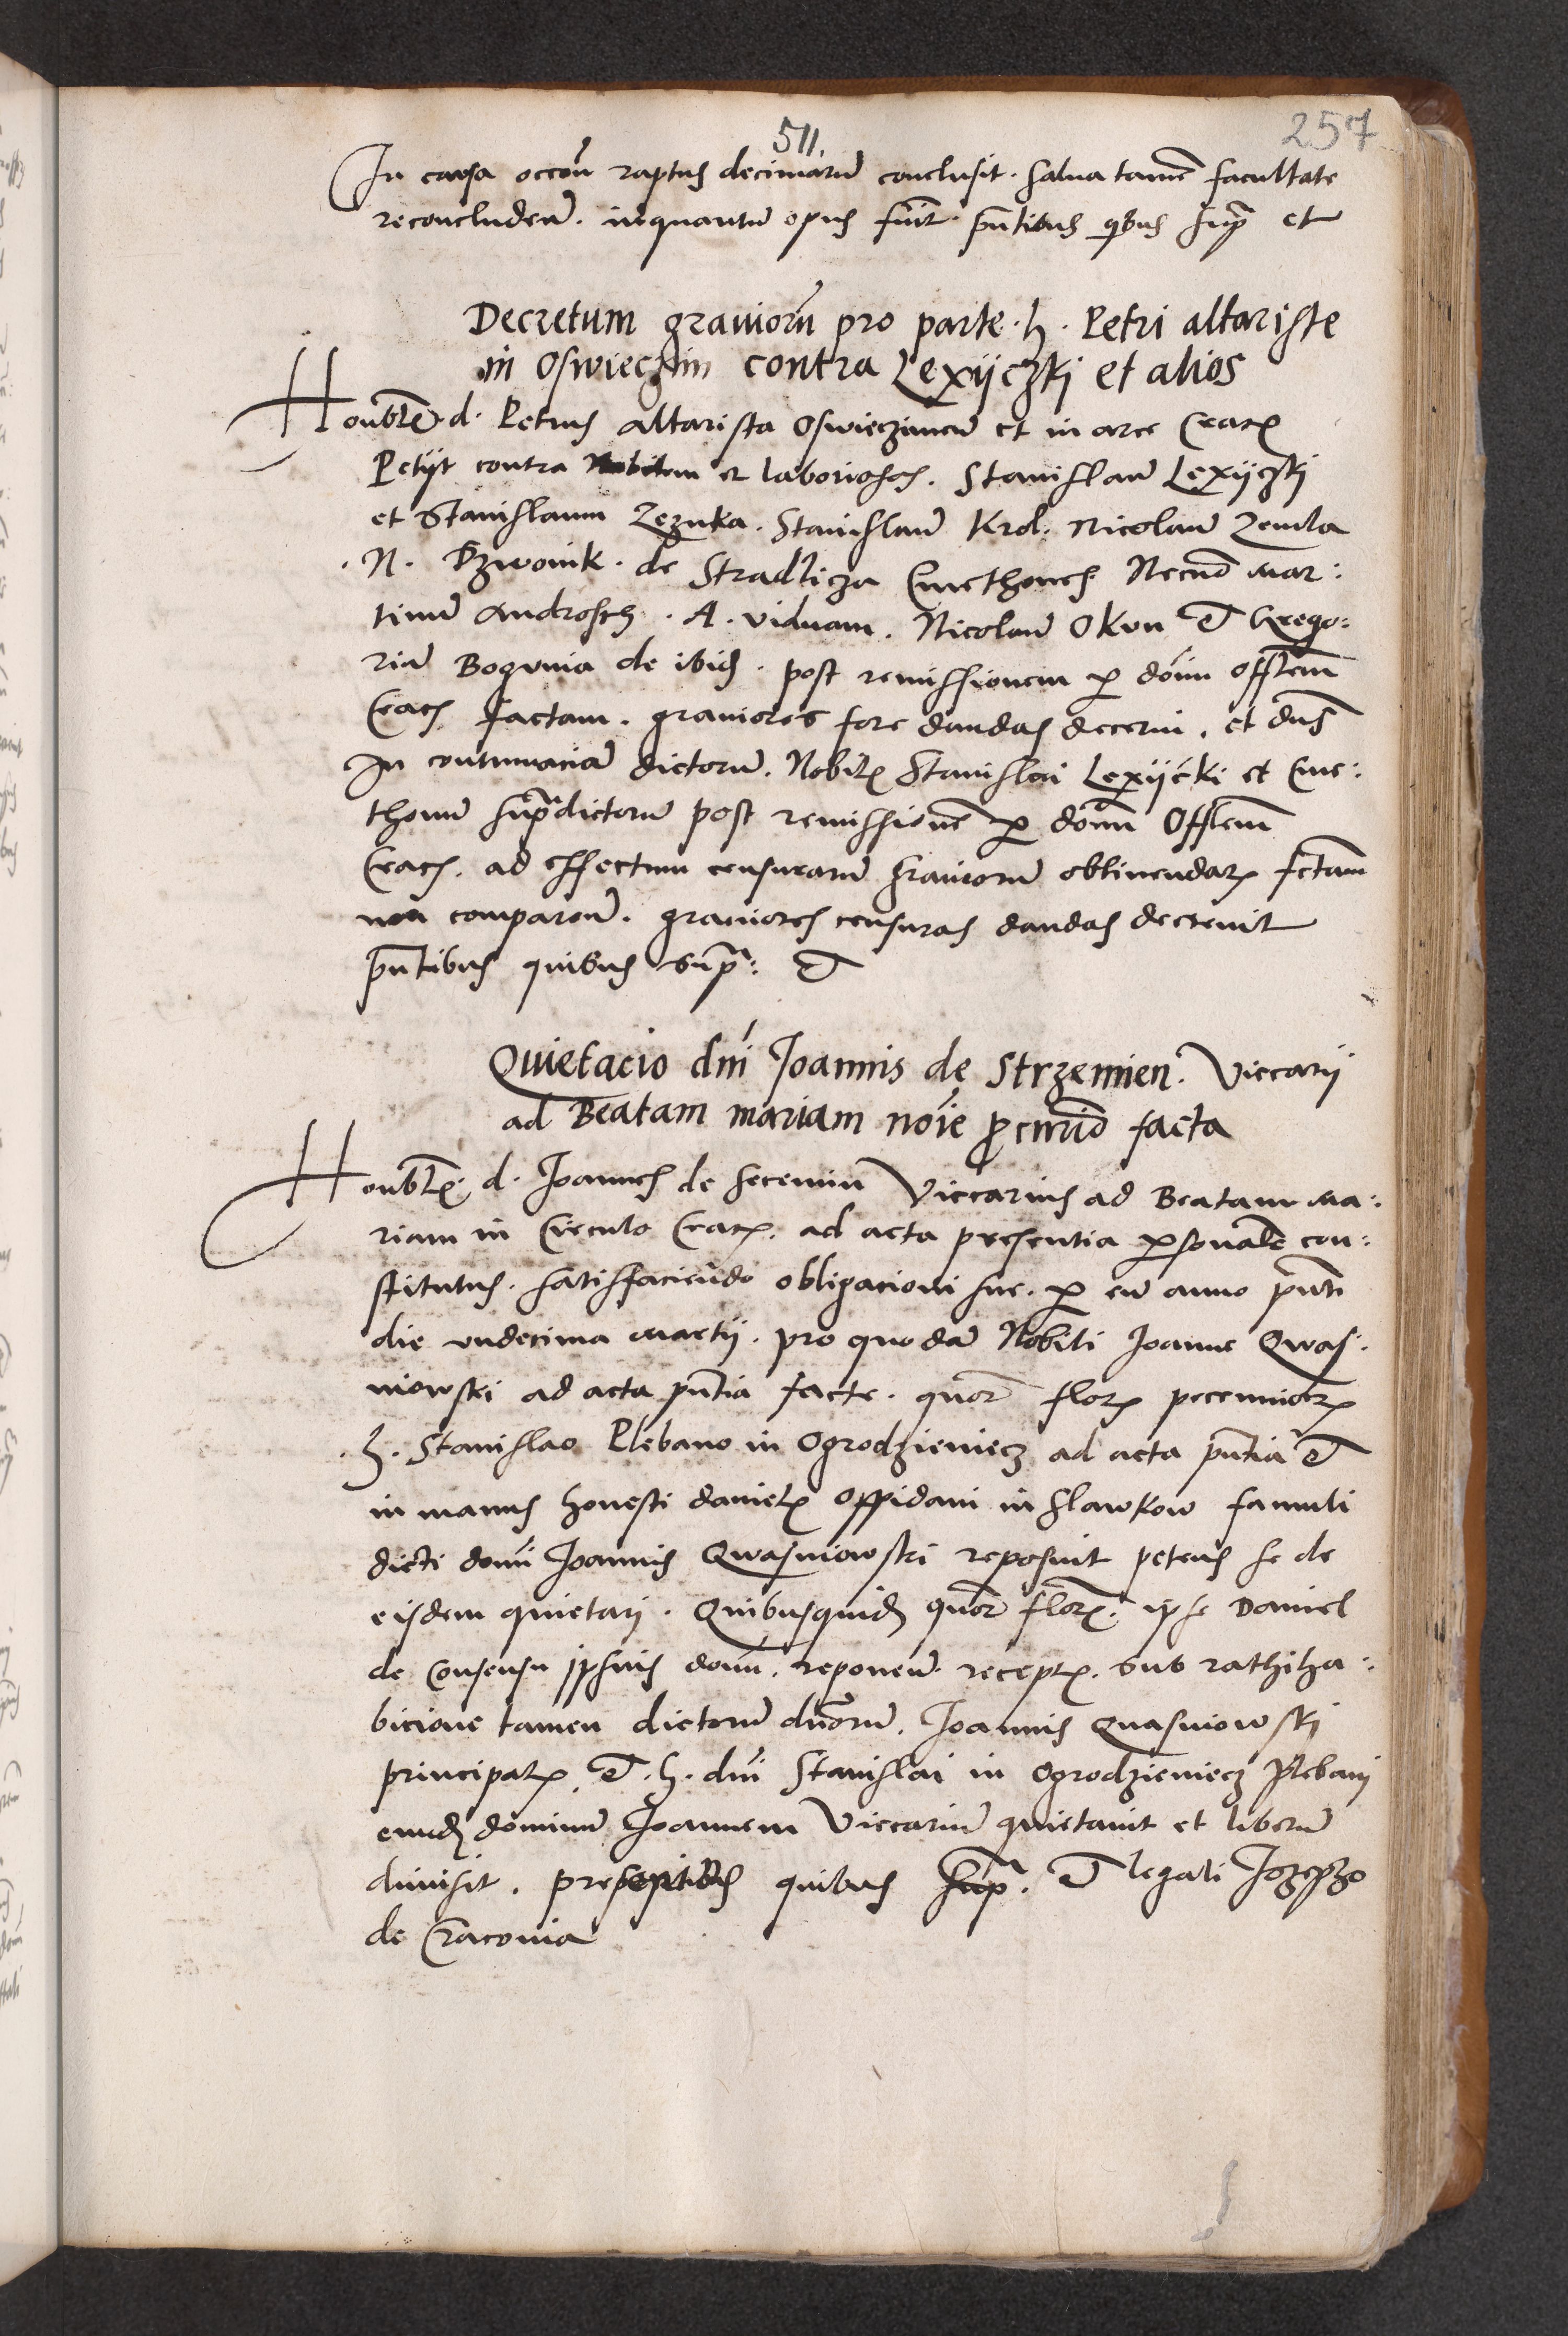 511.
257
In causa occōn raptus decimarū conclusit. salua tamē facultate
reconcludeñ. inquantū opus fuīt. pñtibus qbus supª et
Decretum grauiorū pro parte .h. Petri altariste
in Oswieczim contra Lexijczkj et alios
Honbłis d. Petrus altarista Oswieczimeñ et in arce Cracō
Petijt contra Nobilem et laboriosos. Stanislaū Lexijczkj
et Stanislaum Zeznka. Stanislaū Krol. Nicolaū Zemla
.N. Dzwonik. de Stradlicza Cmethones. Necnō mar:
tinū Androsch. A. viduam. Nicolaū Okvn et Grego:
riū Bogvnia de ibid. post remissionem p dōnū offłem
Crac. factam. grauiores fore dandas decerni. et dns
In contumaciā dictorū. Nobił Stanislai Lexijcki et Cme:
thonū supªdictorū post remissionē p donū Offłem
Crac. ad effectum censurarū grauiorū obtinendar fctam
non compareñ. grauiores censuras dandas decreuit
pñtibus quibus supª: et
Quietacio dni Joannis de Strzemien. Viccarij
ad Beatam mariam noīe pcurīo facta
Honbłis. d. Joannes de Secemin Viccarius ad Beatam Ma:
riam in Circulo Crac. ad acta presentia psonalr con:
stitutus. satisfaciendo obligacioni sue. p eū anno pñti
die vndecima martij. pro quodā Nobili Joanne Qwas:
niowski ad acta pñtia facte. quor flor pecuniar
.h. Stanislao Plebano in Ogrodzieniecz ad acta pñtia et
in manus honesti Daniel oppidani in Slawkow famuli
dicti doni Joannis Qwasniowski reposuit petens se de
eisdem quietarj. Quibusquid quor flor. ipse Daniel
de consensu ipsius doni. reponeñ. recept. sub rathiha:
bicione tamen dictorū dnorū. Joannis Quasniowskj
principal. et .h. dni Stanislai in Ogrodzieniecz Plebanj
eund dominū Joannem Viccariū quietauit et liberū
dimisit. presentibus quibus supª. et legali Jozepho
de Cracouia